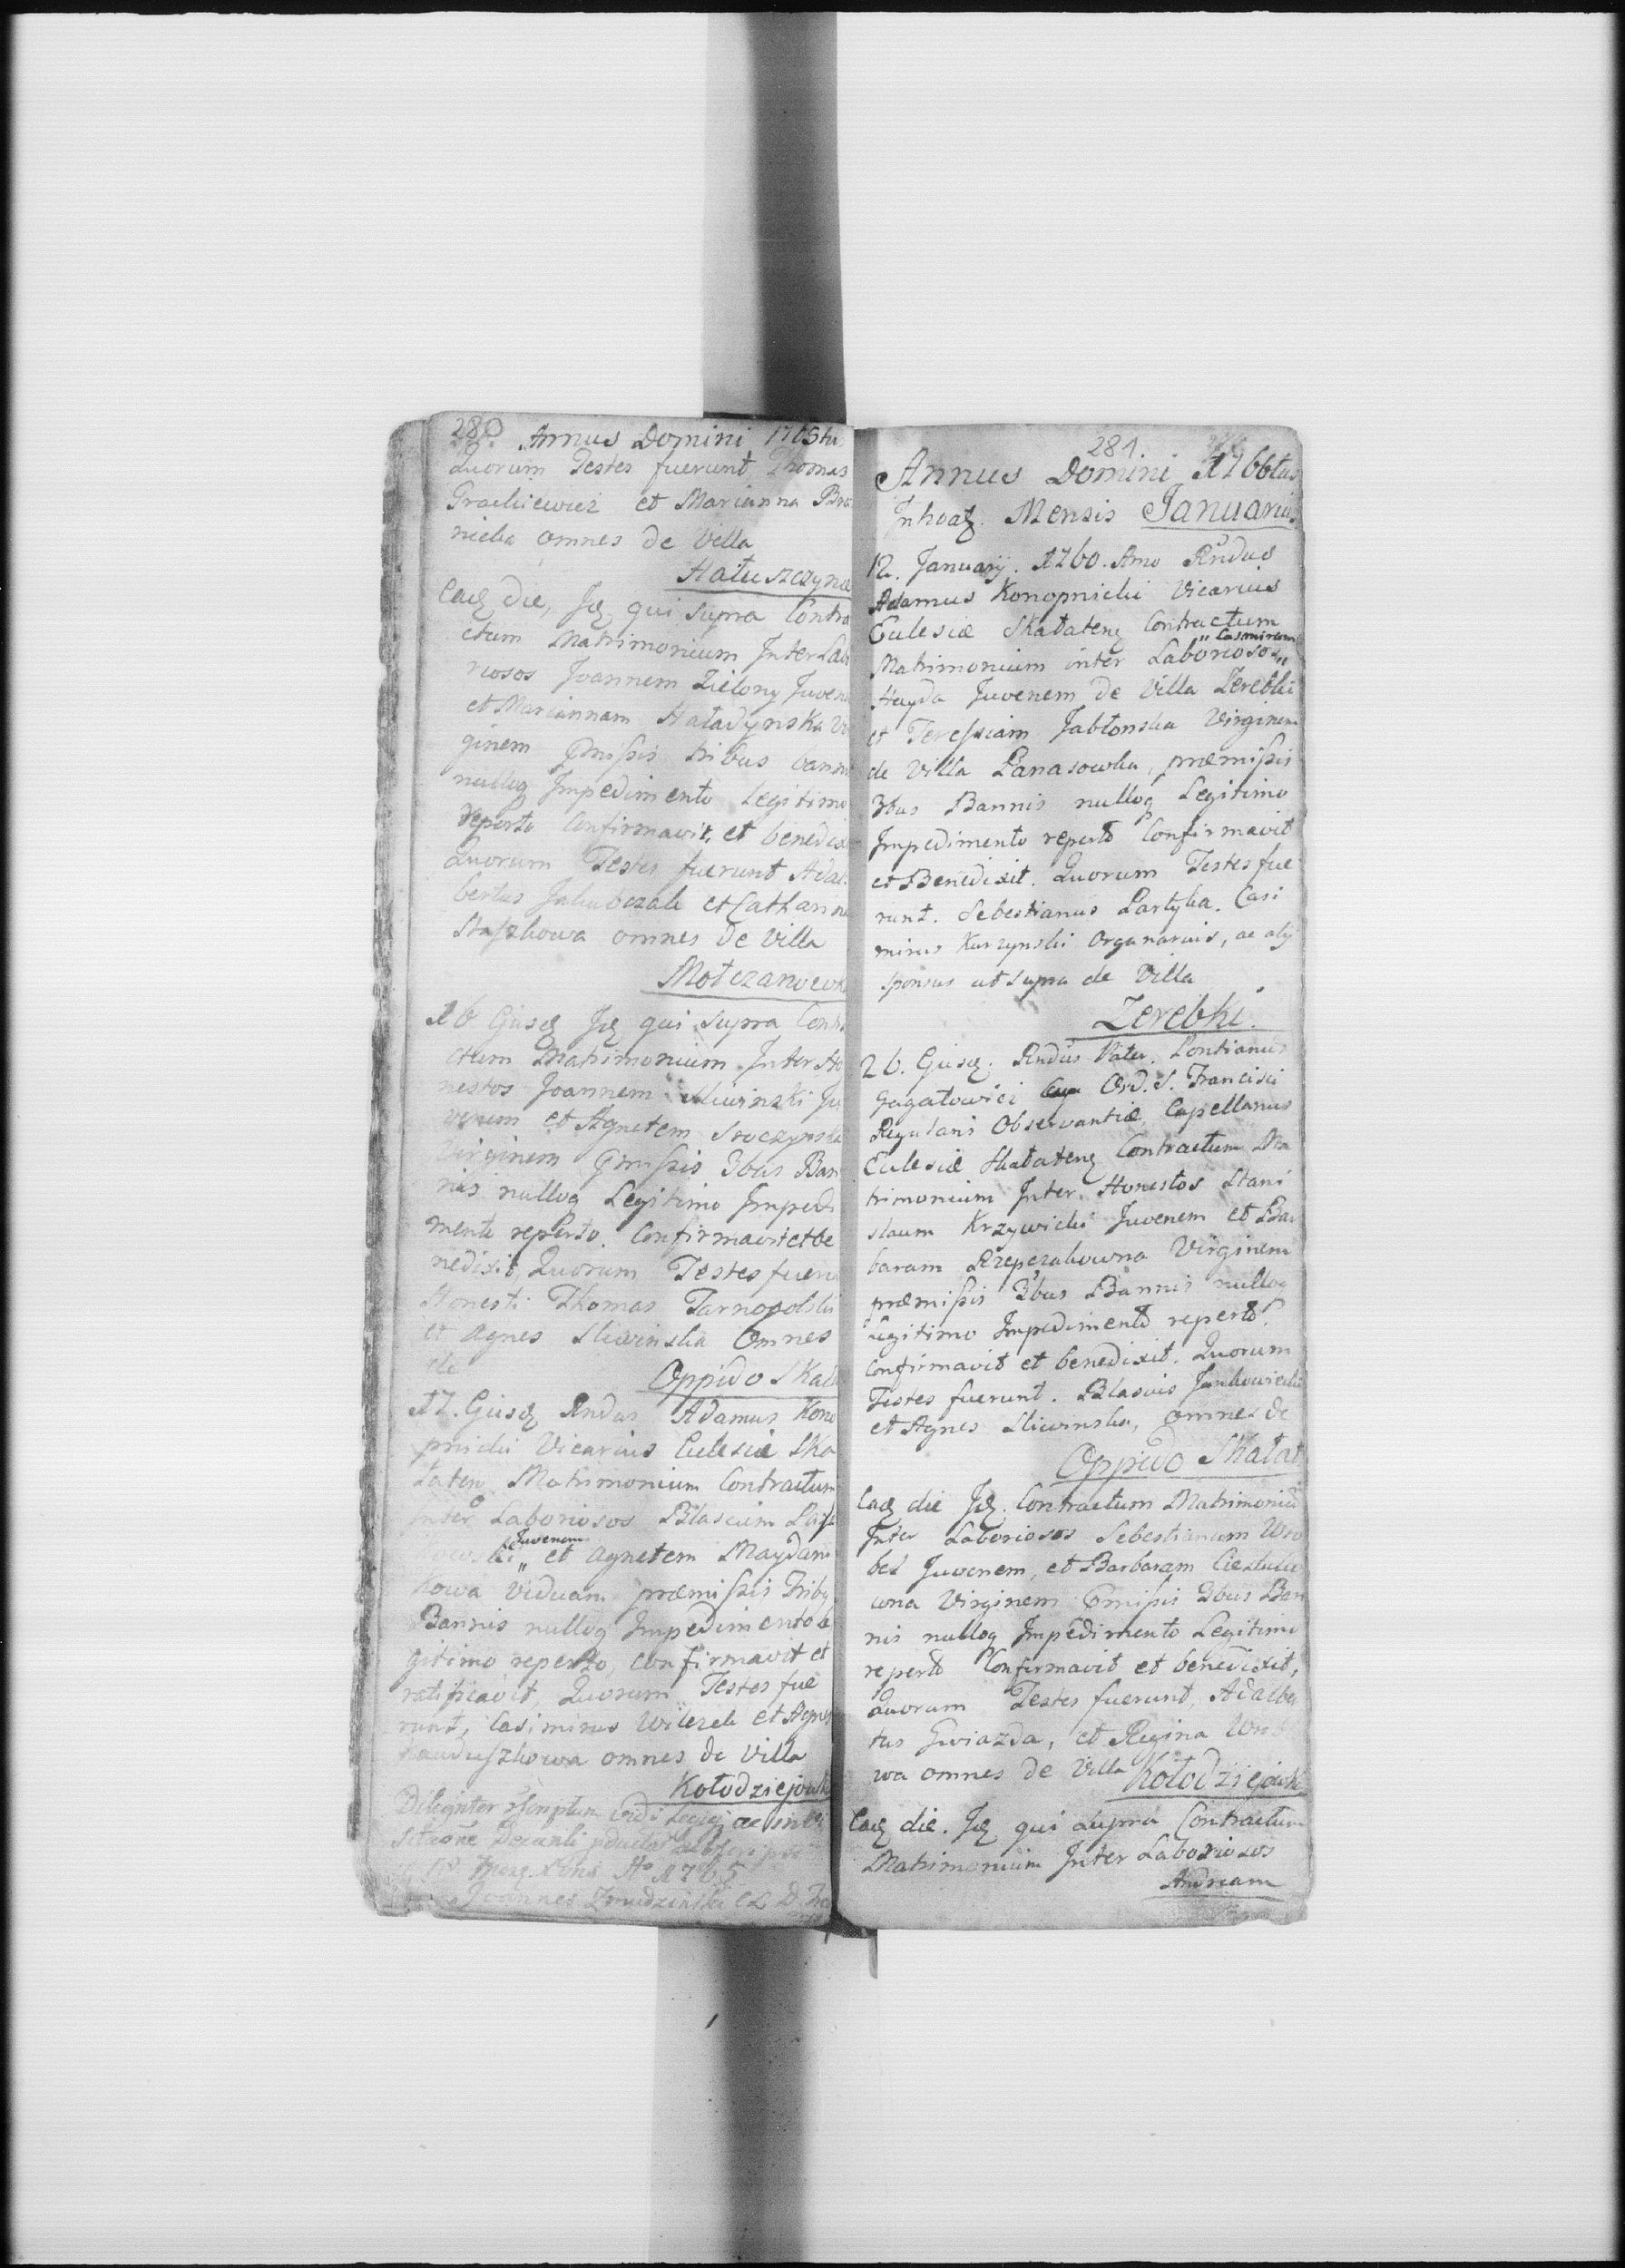 280. Annus Domini 1765tu
Quorum Testes fuerunt Thomas
Grackiewicz et Marianna Bro
nicka omnes de Villa
Hałuszczyńce
Eadẽ die, Jdẽ qui supra Contra
ctum Matrimonium Inter Labo
riosos Joannem Zielony Juvene
et Mariannam Haładynska Vir
ginem pmissis tribus bannis
nulloq Impedimento Legitimo
reperto Confirmavit, et benedixi
Quorum Testes fuerunt Adal
bertus Jakubczak et Catharina
Staszkowa omnes de Villa
Mołczanowka
16 Ejusdẽ Jdẽ qui supra Contra
ctum Matrimonium Inter Ho
nestos Joannem Sliwinski Ju
venem et Agnetem Sroczynska
Virginem pmissis 3bus Ban
nis nulloq Legitimo Impedi
mento reperto. Confirmavit et be
nedixit, Quorum Testes fueru
Honesti Thomas Tarnopolski
et Agnes Sliwinska Omnes
de
Oppido Skała
17. Ejusdẽ Rndus Adamus Kono
pnicki Vicarius Eclesiæ Ska
łaten Matrimonium Contractum
Inter Laboriosos Blasium
Juvenem
et Agnetem Maydani
kowa Viduam præmissis Tribq
Bannis nulloq Impedimento le
gitimo reperto, confirmavit et
ratificavit, Quorum Testes fue
runt, Casimirus Wilczek et Agnes
omnes de Villa
Kołodziejowka
1765
Joannes Zmudzinski

281
Annus Domini 1766tus
Inhoatq. Mensis Januarius
12. January. 1760. Amo Rndus
Adamus Konopnicki Vicarius
Eclesiæ Skałateng Contractum
Casmirum
Matrimonium inter Laboriosos,,
Hayda Juvenem de Villa Zerebki
et Teressiam Jabłonska Virginem
de Villa Panasowka, præmissis
3bus Bannis nulloq Legitimo
Impedimento reperto Confirmavit
et Benedixit. Quorum Testes fue
runt. Sebestianus Partyka. Casi
mirus Kurzynski Organarius, ac aly
sponsus ut supra de Villa
Zerebki.
26. Ejusdẽ. Rndus Pater. Pontianus
Gagatowici Ord. S. Francisci
Regularis Observantiæ, Capellanus
Eclesiæ Skałateng Contractum Ma
trimonium Inter Honestos Stani
slaum Krzywicki Juvenem et Bar
baram Rzepczakowna Virginem
præmissis 3bus Bannis nulloq
Legitimo Impedimento reperto.
Confirmavit et benedixit. Quorum
Testes fuerunt. Blasius Jankowicki
et Agnes Sliwinska, omnes de
Oppido Skałat
Eadẽ die Jdẽ. Contractum Matrimoniũ
Inter Laboriosos Sebestianum Wro
bel Juvenem, et Barbaram
wna Virginem pmissis 3bus Ban
nis nulloq Impedimento Legitimo
reperto Confirmavit et benedixit,
Quorum Testes fuerunt, Adalber
tus Gwiazda, et Regina Wrobl
wa omnes de Villa Kołodziejowk
Eadẽ die. Jdẽ qui supra Contractum
Matrimonium Inter Laboriosos
Andream